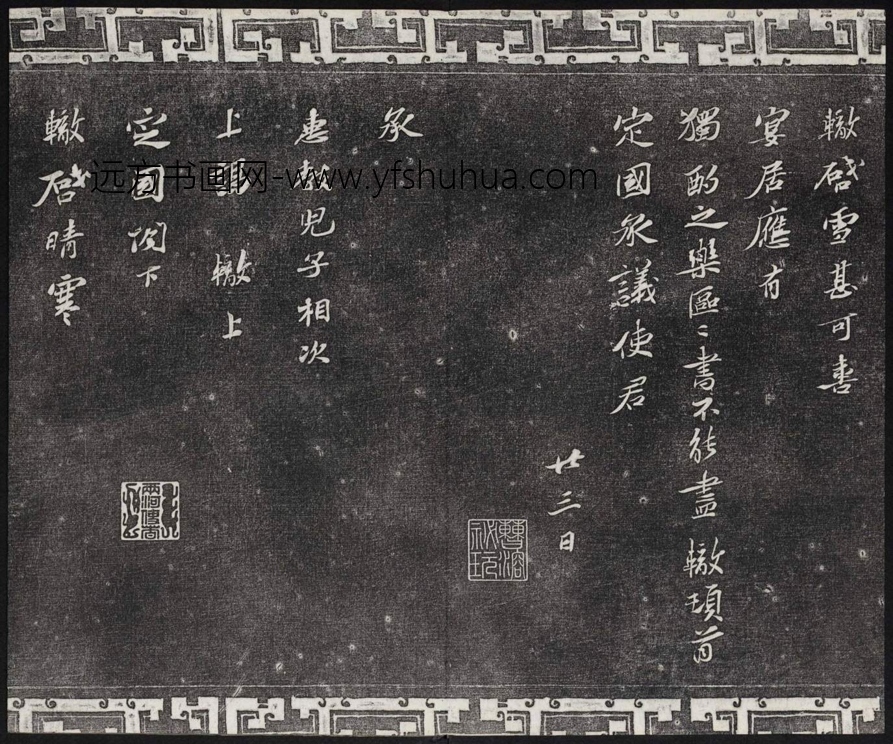 轍啓雪甚可喜
宴居應有
獨酌之樂區〻書不能盡 轍頓首
定國承議使君
廿三日
承
惠 兒子相次
上 轍上
定國閤下
轍啓晴寒
远方书画网-www.yfshuhua.com